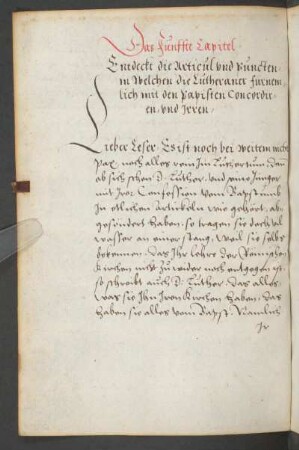 Das Fünffte Capitel
Entdeckt die Articul vnd Puncten
in Welchen die Lutheraner fürnem
lich mit den Papisten Concordir
en, vnd Jrren,
Lieber Leser, Es ist noch bey weitem nicht
noch alles vom Luthertum, dan
ob sich schon D. Luther, vnd seine Junger
mit Irer Confession vom Bapstumb
in etlichen Artickeln wie gehört, ab,
gesöndert haben, so tragen sie doch vil
wasser an einer stang, Weil sie selbs
bekennen, das Ihr lehre der Römischen
Kirchen nicht Zuwider noch entgegen ist,
so schreibt auch D. Luther, das alles
was sie Inn Iren Kirchen haben, das
haben sie alles vom Bapst, Namlich
Ir